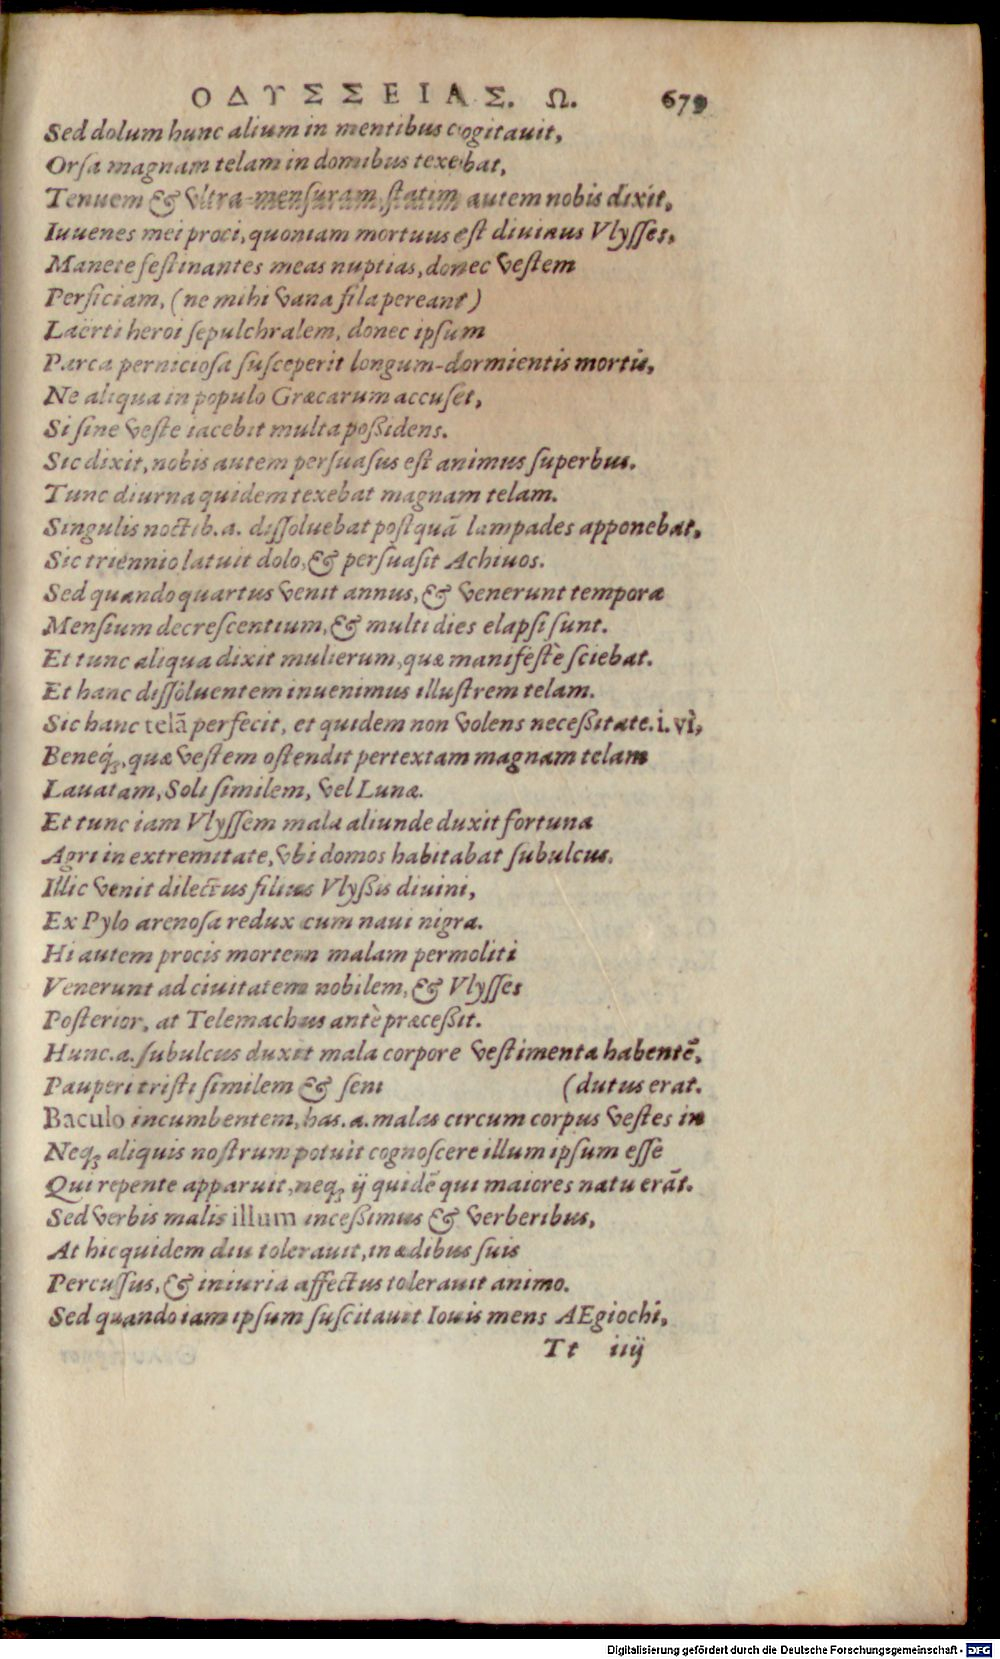 ΟΔΥΣΣΕΙΑΣ. Ω. 679
Sed dolum hunc alium in mentibus cogitauit,
Orsa magnam telam in domibus texebat,
Tenuem & vltra-mensuram, statim autem nobis dixit,
Iuuenes mei proci, quoniam mortuus est diuinus Vlysses,
Manete festinantes meas nuptias, donec vestem
Perficiam, (ne mihi vana fila pereant)
Laërti heroi sepulchralem, donec ipsum
Parca perniciosa susceperit longum-dormientis mortis,
Ne aliqua in populo Græcarum accuset,
Si sine veste iacebit multa poßidens.
Sic dixit, nobis autem persuasus est animus superbus.
Tunc diurna quidem texebat magnam telam.
Singulis noctib.a. dissoluebat postquā lampades apponebat,
Sic triennio latuit dolo, & persuasit Achiuos.
Sed quando quartus venit annus, & venerunt tempora
Mensium decrescentium, & multi dies elapsi sunt.
Et tunc aliqua dixit mulierum, quæ manifestè sciebat.
Et hanc dissoluentem inuenimus illustrem telam.
Sic hanc telā perfecit, et quidem non volens neceßitate.i.vì,
Beneq́;, quæ vestem ostendit pertextam magnam telam
Lauatam, Soli similem, vel Lunæ.
Et tunc iam Vlyssem mala aliunde duxit fortuna
Agri in extremitate, vbi domos habitabat subulcus.
Illic venit dilectus filius Vlyßis diuini,
Ex Pylo arenosa redux cum naui nigra.
Hi autem procis mortem malam permoliti
Venerunt ad ciuitatem nobilem, & Vlysses
Posterior, at Telemachus antè præceßit.
Hunc.a. subulcus duxit mala corpore vestimenta habentē,
Pauperi tristi similem & seni (dutus erat.
Baculo incumbentem, has.a. malas circum corpus vestes in
Neq; aliquis nostrum potuit cognoscere illum ipsum esse
Qui repente apparuit, neq; ij quidē qui maiores natu erāt.
Sed verbis malis illum inceßimus & verberibus,
At hic quidem diu tolerauit, in ædibus suis
Percussus, & iniuria affectus tolerauit animo.
Sed quando iam ipsum suscitauit Iouis mens AEgiochi,
Tt iiij
Digitalisierung gefördert durch die Deutsche Forschungsgemeinschaft - DFG